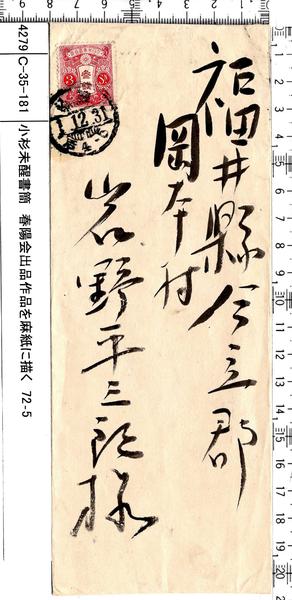 4279 C-35-181 小杉未醒書簡 春陽会出品作品を麻紙に描く 72-5
福井縣今立郡
岡本村
岩野平三郎様
1.12.31